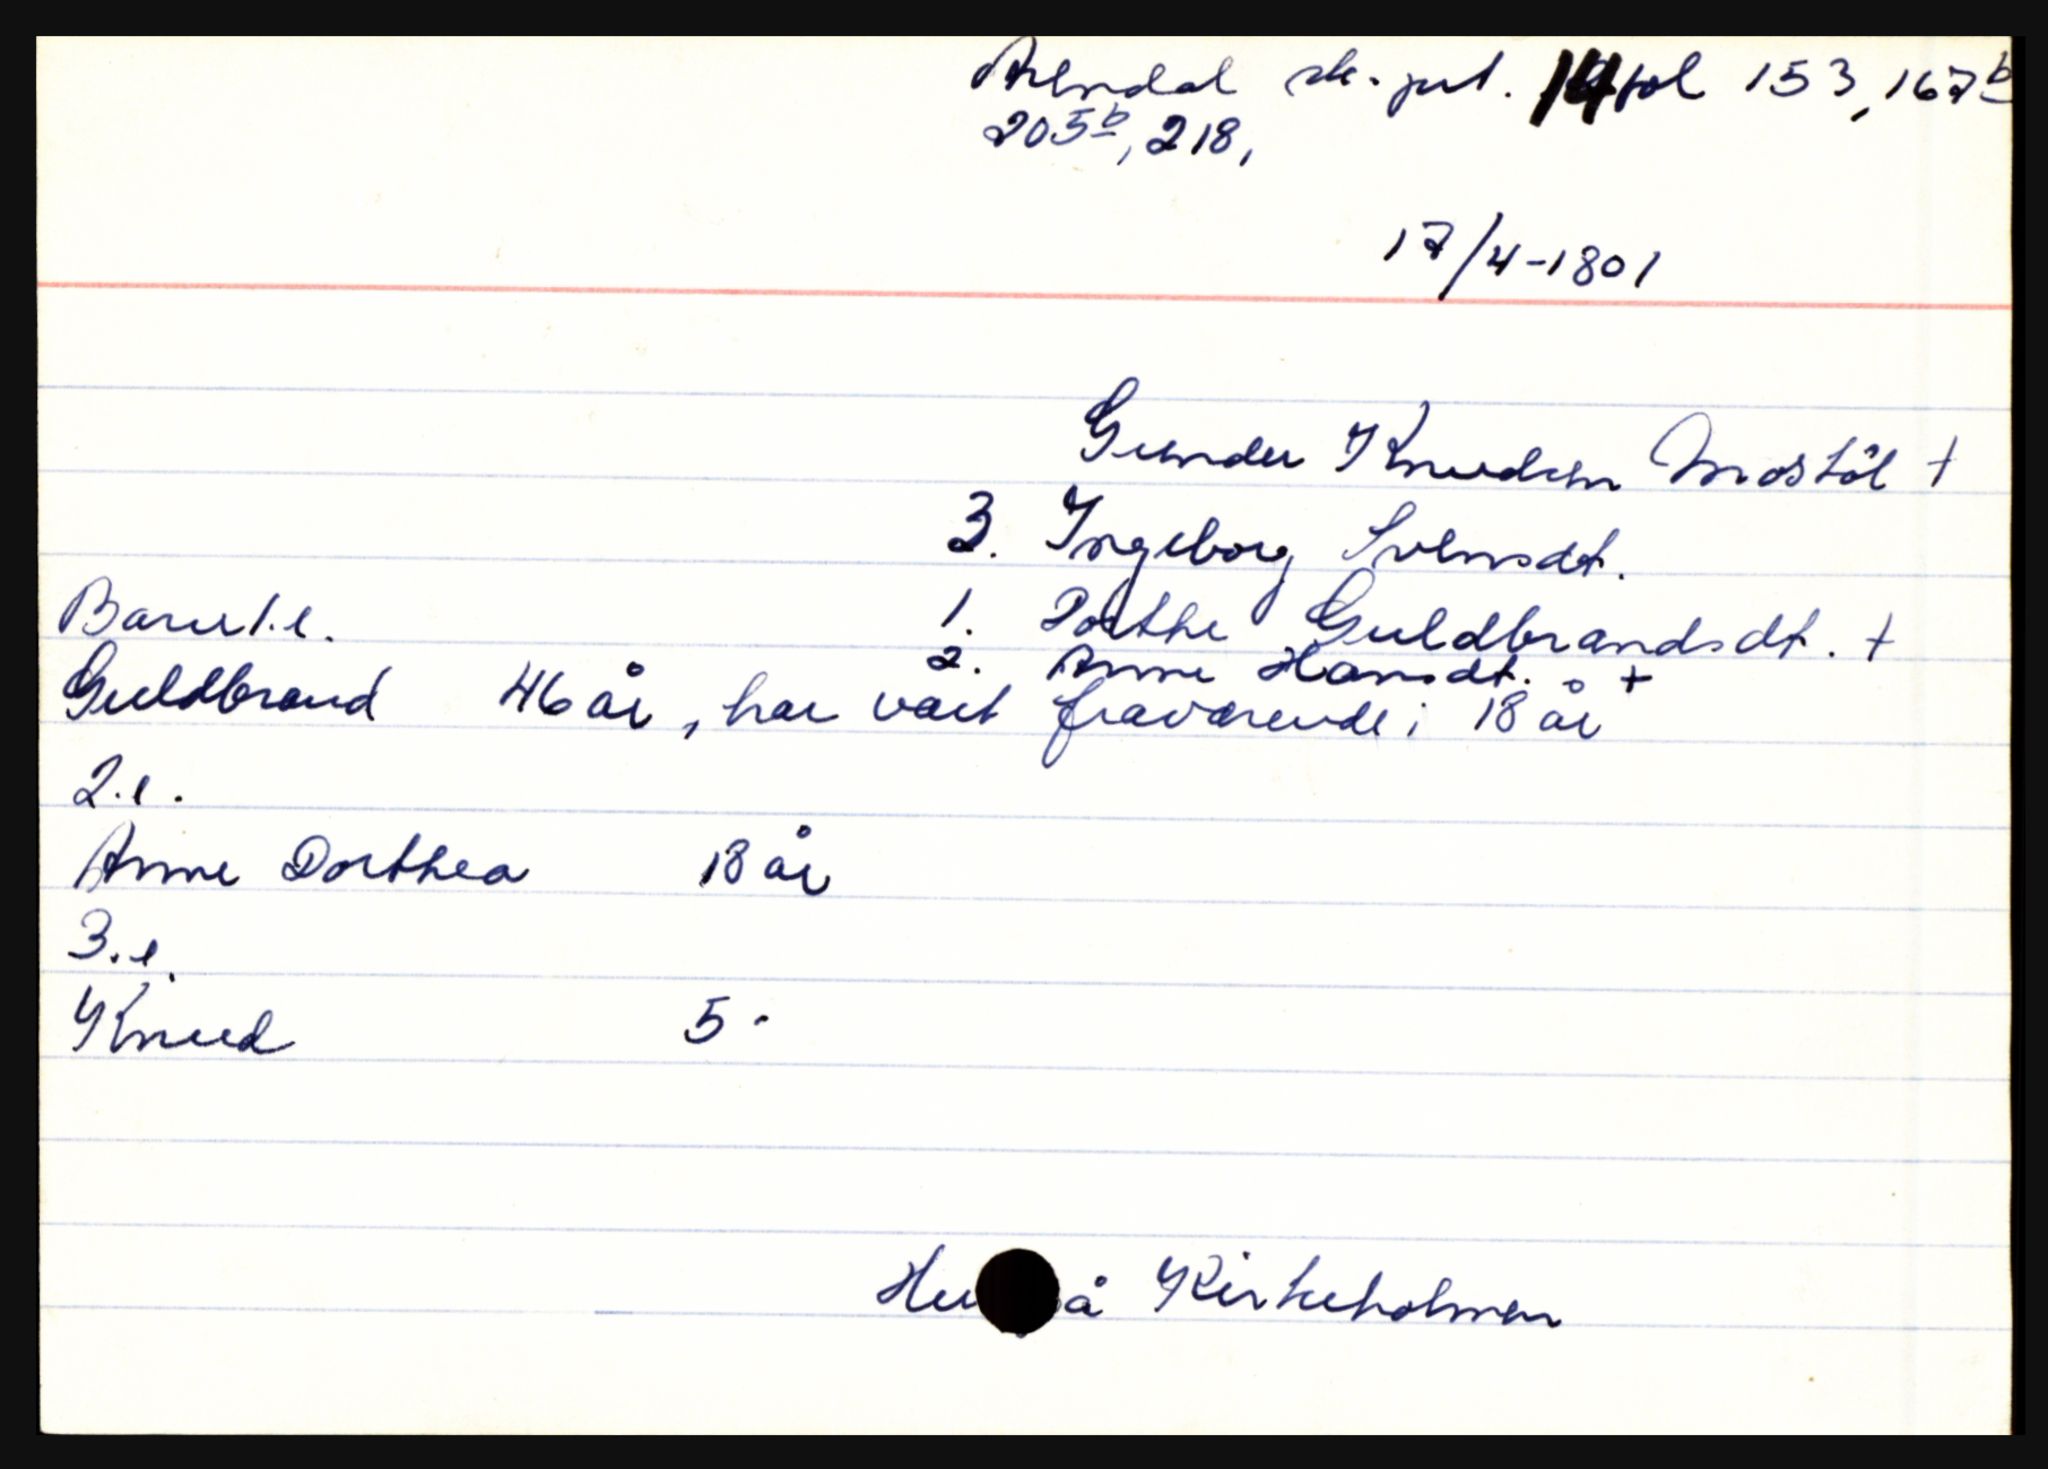 Arendal sk. prt. 14 fol 153, 167b
205b, 218,
17/4-1801
Gunder Knudsen Mostöl +
3. Ingeborg Svensdt.
Barn 1.e. 1. Dorthe Guldbrandsdt. +
2. Anne Hansdt. +
Guldbrand 46 år, har vært fraværende i 18 år
2.e.
Anne Dorthea 18 år
3.e.
Knud 5 -
på Kirkeholmen